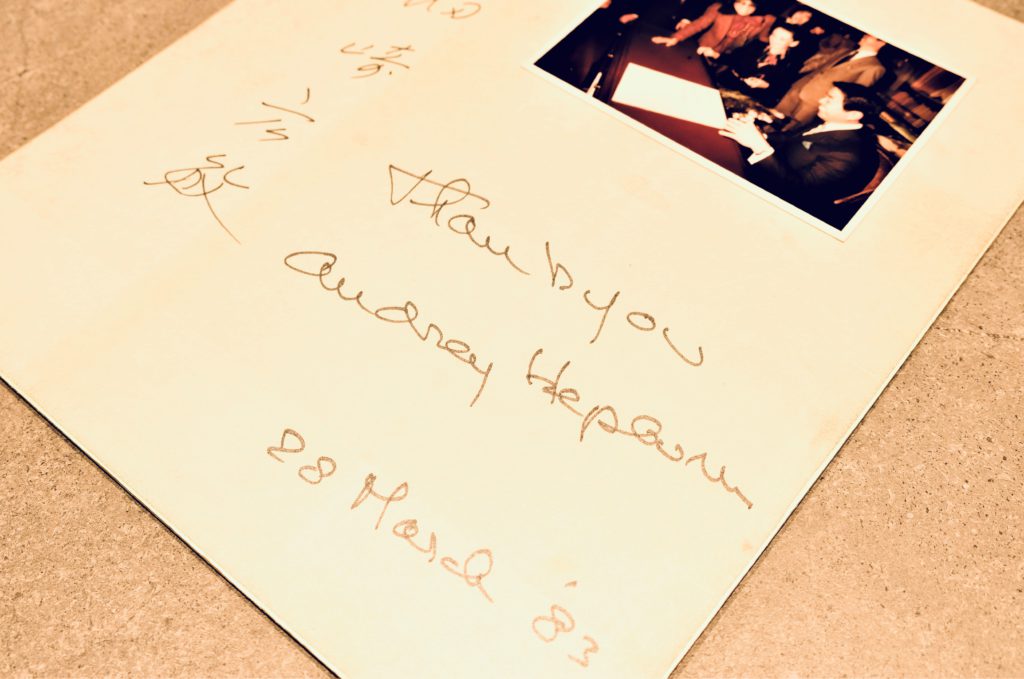 Thank you
Audrey Hepburn
28 March '83